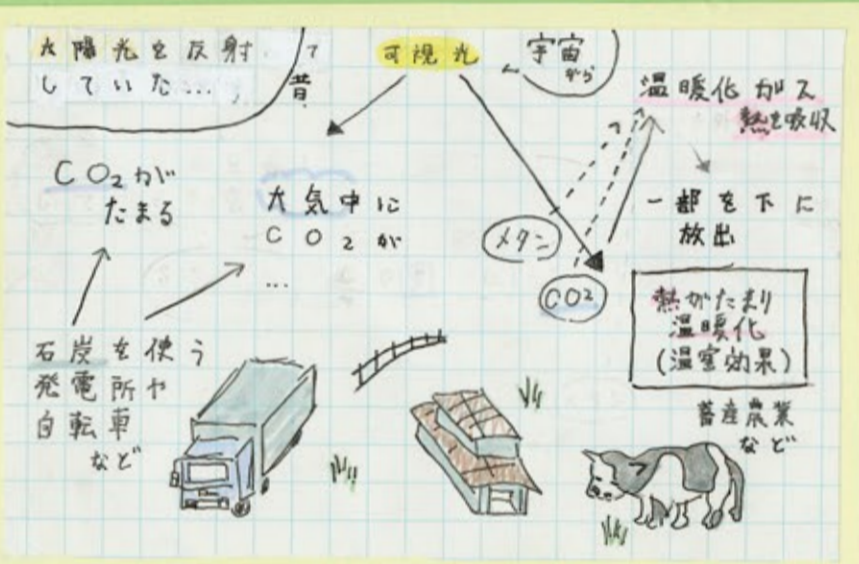 太陽光を反射
していた…,
昔
可視光
宇宙
から
温暖化ガス
熱を吸収
一部を下に
放出
CO2が
たまる
大気中に
CO2が
…
メタン
CO2
熱がたまり
温暖化
(温室効果)
石炭を使う
発電所や
自転車
など
畜産農業
など